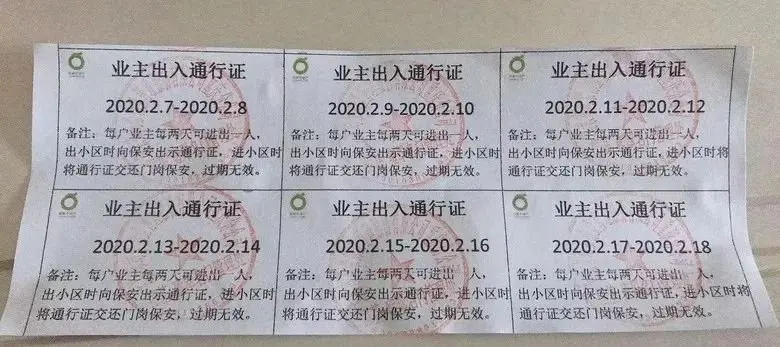 业主出入通行证
2020.2.7-2020.2.8
备注：每户业主每两天可进出一人，
出小区时向保安出示通行证，进小区时将
通行证交还门岗保安，过期无效。
业主出入通行证
2020.2.9-2020.2.10
备注：每户业主每两天可进出一人，
出小区时向保安出示通行证，进小区时将
通行证交还门岗保安，过期无效。
业主出入通行证
2020.2.11-2020.2.12
备注：每户业主每两天可进出一人，
出小区时向保安出示通行证，进小区时将
通行证交还门岗保安，过期无效。
业主出入通行证
2020.2.13-2020.2.14
备注：每户业主每两天可进出一人，
出小区时向保安出示通行证，进小区时
将通行证交还门岗保安，过期无效。
业主出入通行证
2020.2.15-2020.2.16
备注：每户业主每两天可进出一人，
出小区时向保安出示通行证，进小区时将
通行证交还门岗保安，过期无效。
业主出入通行证
2020.2.17-2020.2.18
备注：每户业主每两天可进出一人，
出小区时向保安出示通行证，进小区时将
通行证交还门岗保安，过期无效。